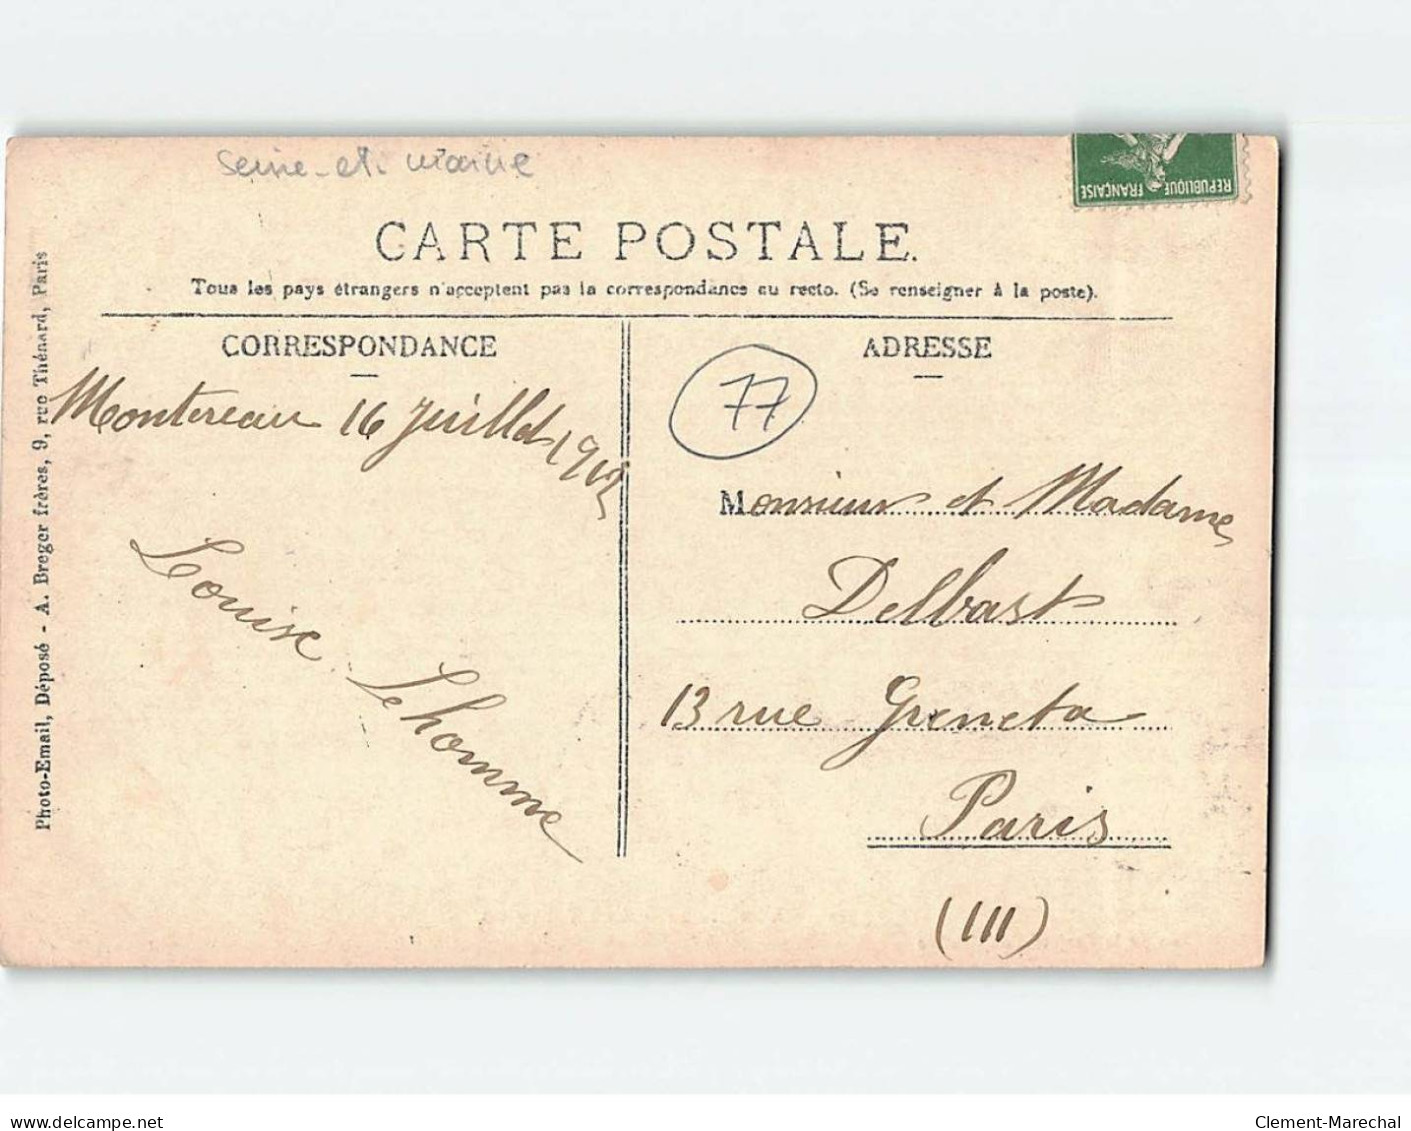 Seine-et-Marne
REPUBLIQUE FRANÇAISE
CARTE POSTALE.
Tous les pays étrangers n'acceptent pas la correspondance au recto. (Se renseigner à la poste).
CORRESPONDANCE
Montereau 16 Juillet 1912
Louise Lehomme
ADRESSE
77
Monsieur et Madame
Delbast
13 rue Greneta
Paris
(III)
Photo-Email, Déposé - A. Breger frères, 9, rue Thénard, Paris
www.delcampe.net
Clement-Marechal